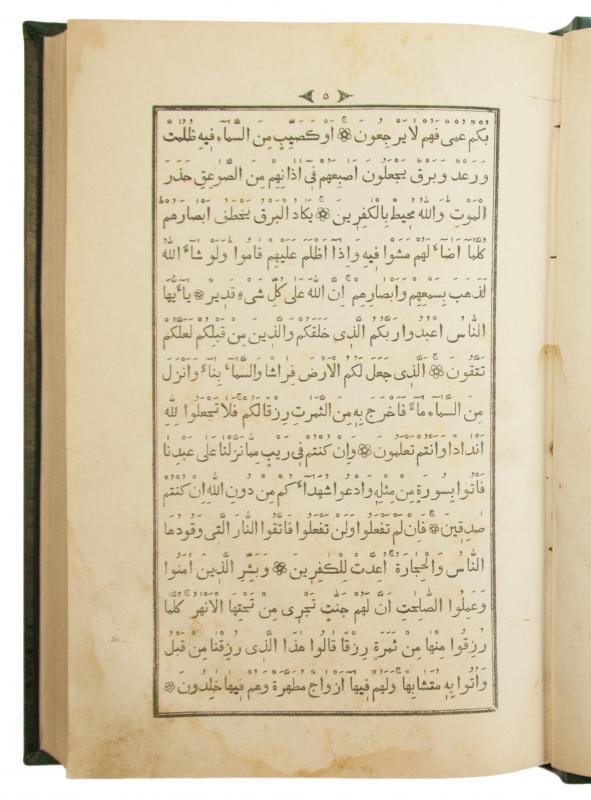 ٥
بُكْمٌ عُمْىٌ فَهُمْ لَا يَرْجِعُونَ ۞ اَوْ كَصَيِّبٍ مِنَ السَّمَآءِ فِيهِ ظُلُمَاتٌ
وَرَعْدٌ وَبَرْقٌ يَجْعَلُونَ اَصَابِعَهُمْ فِى اٰذَانِهِمْ مِنَ الصَّوَاعِقِ حَذَرَ
الْمَوْتِ وَاللّٰهُ مُحِيطٌ بِالْكَافِرِينَ ۞ يَكَادُ الْبَرْقُ يَخْطَفُ اَبْصَارَهُمْ
كُلَّمَآ اَضَآءَ لَهُمْ مَشَوْا فِيهِ وَاِذَآ اَظْلَمَ عَلَيْهِمْ قَامُوا وَلَوْ شَآءَ اللّٰهُ
لَذَهَبَ بِسَمْعِهِمْ وَاَبْصَارِهِمْ اِنَّ اللّٰهَ عَلٰى كُلِّ شَىْءٍ قَدِيرٌ ۞ يَآ اَيُّهَا
النَّاسُ اعْبُدُوا رَبَّكُمُ الَّذِى خَلَقَكُمْ وَالَّذِينَ مِنْ قَبْلِكُمْ لَعَلَّكُمْ
تَتَّقُونَ ۞ الَّذِى جَعَلَ لَكُمُ الْاَرْضَ فِرَاشًا وَالسَّمَآءَ بِنَآءً وَاَنْزَلَ
مِنَ السَّمَآءِ مَآءً فَاَخْرَجَ بِهِ مِنَ الثَّمَرَاتِ رِزْقًا لَكُمْ فَلَا تَجْعَلُوا لِلّٰهِ
اَنْدَادًا وَاَنْتُمْ تَعْلَمُونَ ۞ وَاِنْ كُنْتُمْ فِى رَيْبٍ مِمَّا نَزَّلْنَا عَلٰى عَبْدِنَا
فَاْتُوا بِسُورَةٍ مِنْ مِثْلِهِ وَادْعُوا شُهَدَآءَكُمْ مِنْ دُونِ اللّٰهِ اِنْ كُنْتُمْ
صَادِقِينَ ۞ فَاِنْ لَمْ تَفْعَلُوا وَلَنْ تَفْعَلُوا فَاتَّقُوا النَّارَ الَّتِى وَقُودُهَا
النَّاسُ وَالْحِجَارَةُ اُعِدَّتْ لِلْكَافِرِينَ ۞ وَبَشِّرِ الَّذِينَ اٰمَنُوا
وَعَمِلُوا الصَّالِحَاتِ اَنَّ لَهُمْ جَنَّاتٍ تَجْرِى مِنْ تَحْتِهَا الْاَنْهَارُ كُلَّمَا
رُزِقُوا مِنْهَا مِنْ ثَمَرَةٍ رِزْقًا قَالُوا هٰذَا الَّذِى رُزِقْنَا مِنْ قَبْلُ
وَاُتُوا بِهِ مُتَشَابِهًا وَلَهُمْ فِيهَآ اَزْوَاجٌ مُطَهَّرَةٌ وَهُمْ فِيهَا خَالِدُونَ ۞